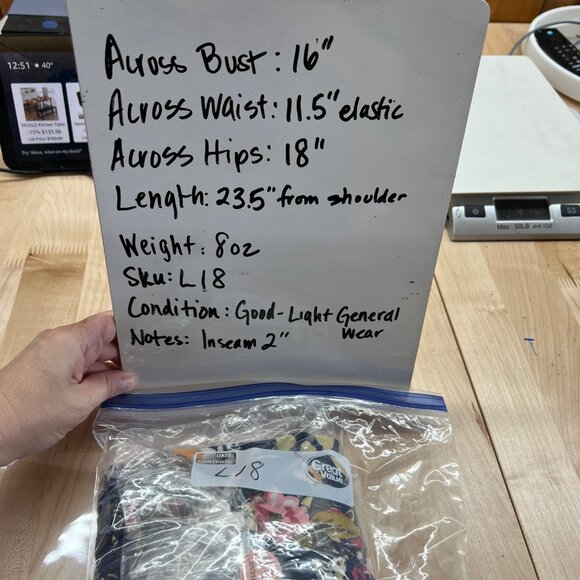 12:51 • 40°
VECELO Kitchen Table
-15% $135.96
Try "Alexa, what are my deals?"
Across Bust: 16"
Across Waist: 11.5" elastic
Across Hips: 18"
Length: 23.5" from shoulder
Weight: 8oz
Sku: L18
Condition: Good-Light General Wear
Notes: Inseam 2"
Max: 50LB d=0.1OZ
0.0
DATE
CONTENTS
L18
Great Value